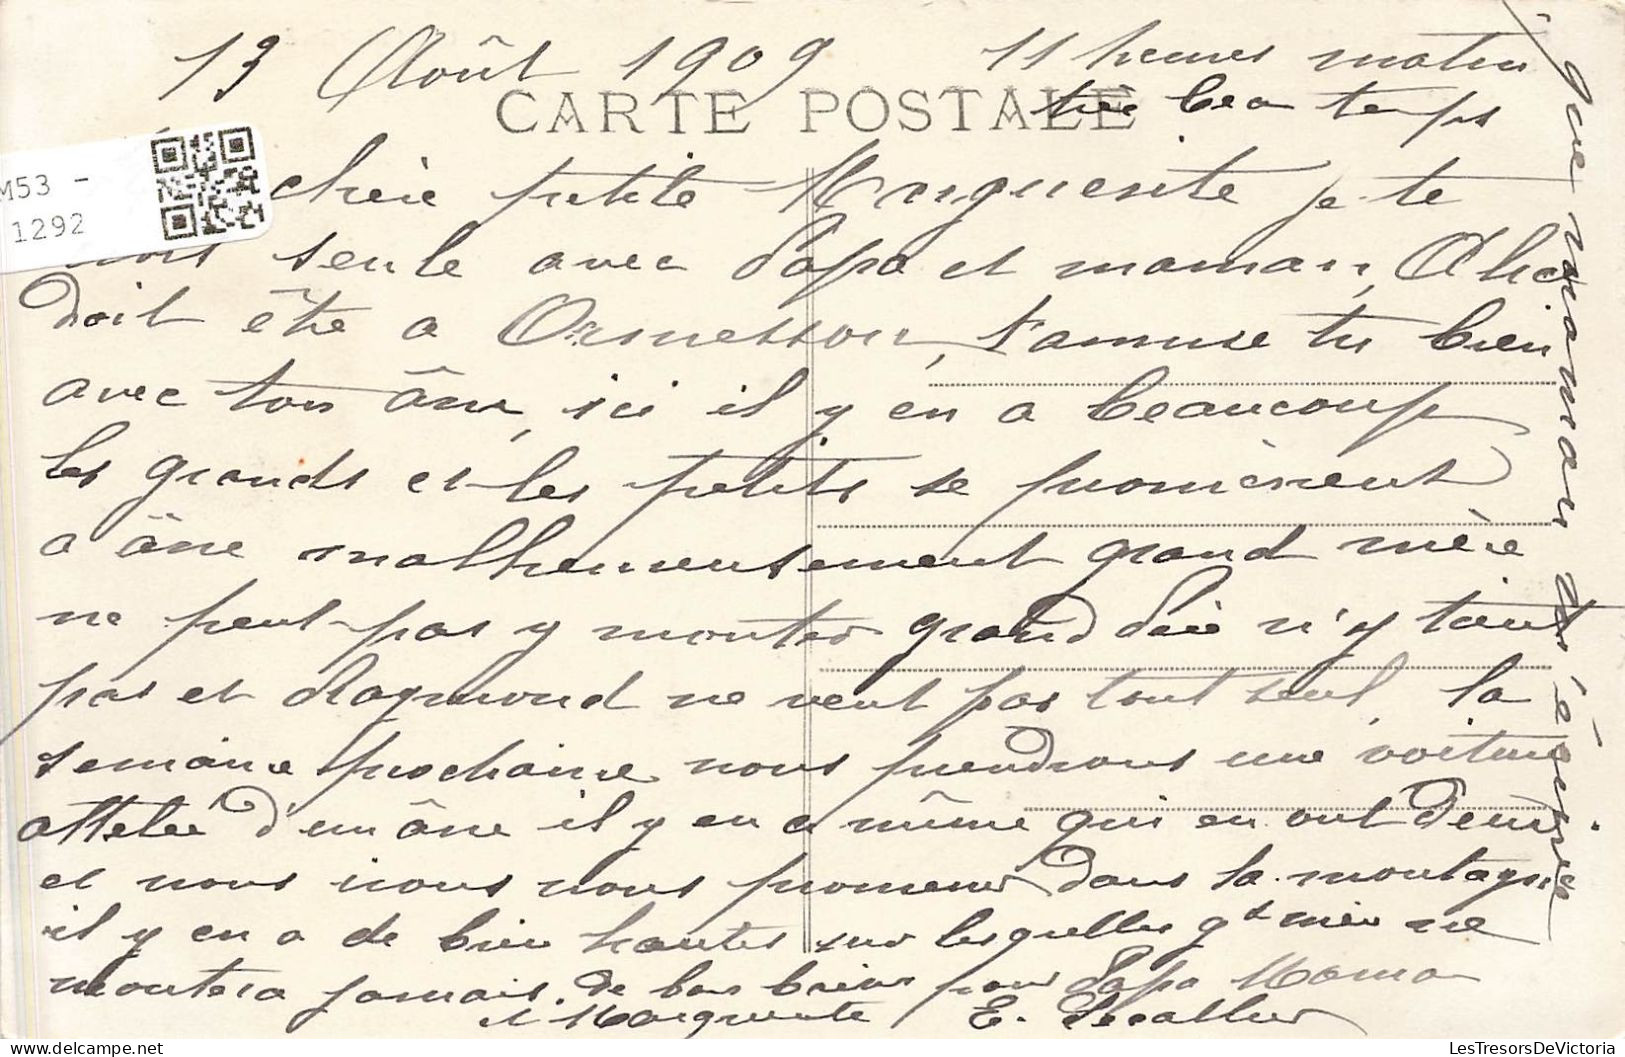 13 Août 1909 11 heures matin
CARTE POSTALE
très beau temps
M53 -
1292
chère petite Marguerite je te
vois seule avec Papa et maman, Alice
doit être a Ormesson, t'amuse tu bien
avec ton âne, ici il y en a beaucoup
les grands et les petits se promènent
a âne malheureusement grand mère
ne peut pas y monter grand père n'y tient
pas et Raymond ne veut pas tout seul, la
semaine prochaine nous prendrons une voiture
attelée d'un âne il y en a même qui en ont deux
et nous irons nous promener dans la montagne
il y en a de bien hautes sur lesquelles gd mère ne
montera jamais. De bons baisers pour Papa Maman
et Marguerite E.
que maman
LesTresorsDeVictoria.com